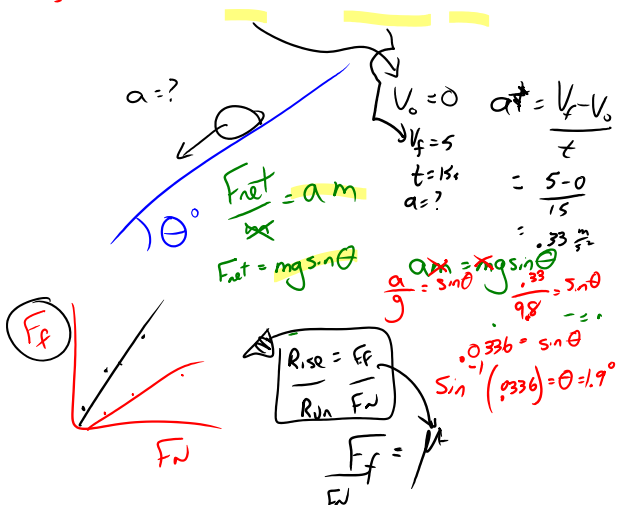 a = ?
V₀ = 0
Vf = 5
t = 15s
a = ?
a = Vf - V₀ / t
= 5 - 0 / 15
= .33 m/s²
θ°
Fnet = a m
Fnet = mg sin θ
am = mg sin θ
a / g = sin θ
.33 / 9.8 = sin θ
.0336 = sin θ
Sin⁻¹ (.0336) = θ = 1.9°
Ff
FN
Rise / Run = Ff / FN
Ff / FN = μ